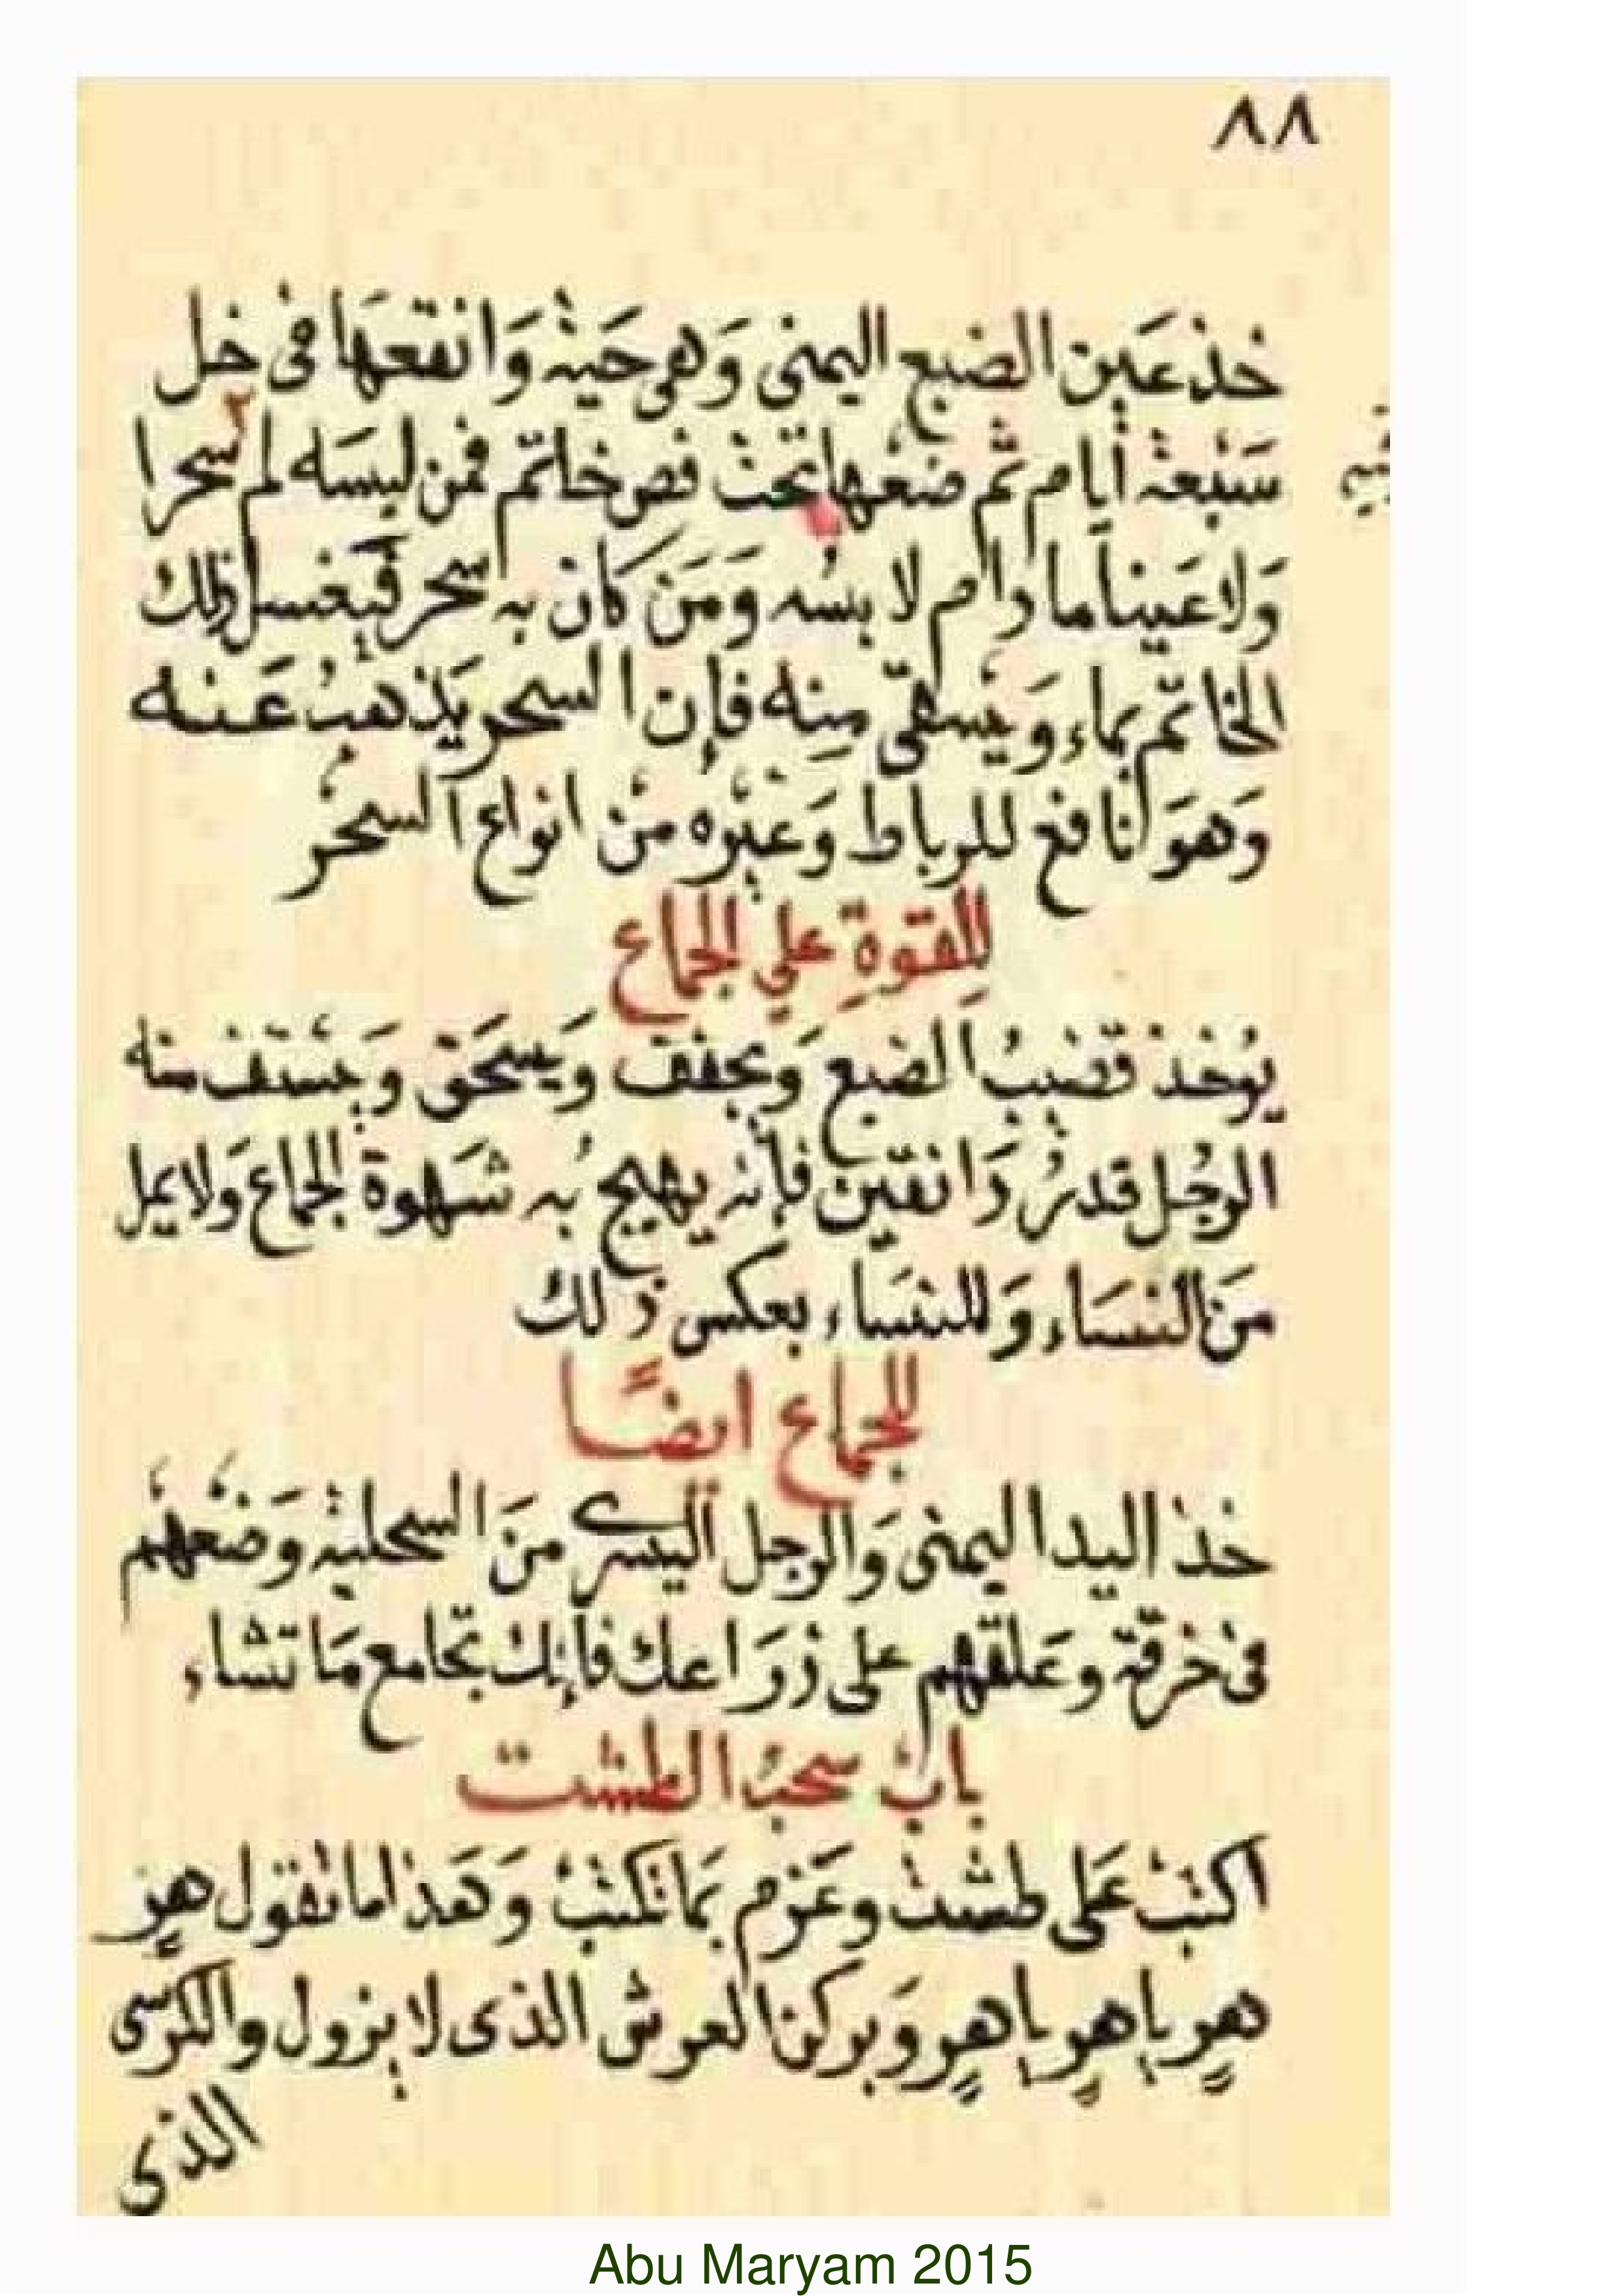 ٨٨
خذ عَين الضبع اليمنى وَهى حَيَة وَانقعهَا فى خل
سَبْعة أيام ثم ضعها تحت فص خاتم فمن لبسَه لم سحرا
وَلا عَيناً ما دام لابسُه وَمَن كان به سحر فيغسل ذلك
الخاتم بماء وَيَسقى مِنه فإن السحر يَذهبُ عَنه
وَهوَ نافع للرباط وَغيْره منْ انواع السحْر
لِلقوةِ على الجماع
يُوخذ قضيبُ الضبع وَيجفف وَيسحَق وَيَستَف منه
الرجُل قدرُ دَانقين فإنه يهيج بُه شَهوة الجماع وَلا يمل
مَن النسَاء وَللنسَاء بعكس ذلك
للجماع ايضًا
خذ اليد اليمنى وَالرجل اليسرى منَ السحلية وَضَعهُم
فى خرقة وعَلقهم على ذرَاعك فإنك تجامع مَا تشاء
باب سحبُ الطشت
اكتبْ على طشت وعَزم بمَا تكتبُ وَهَذا ما تقول هٍر
هٍر ياهٍر ياهٍر وَبركن العرش الذى لا يزول والكرسى
الذى
Abu Maryam 2015